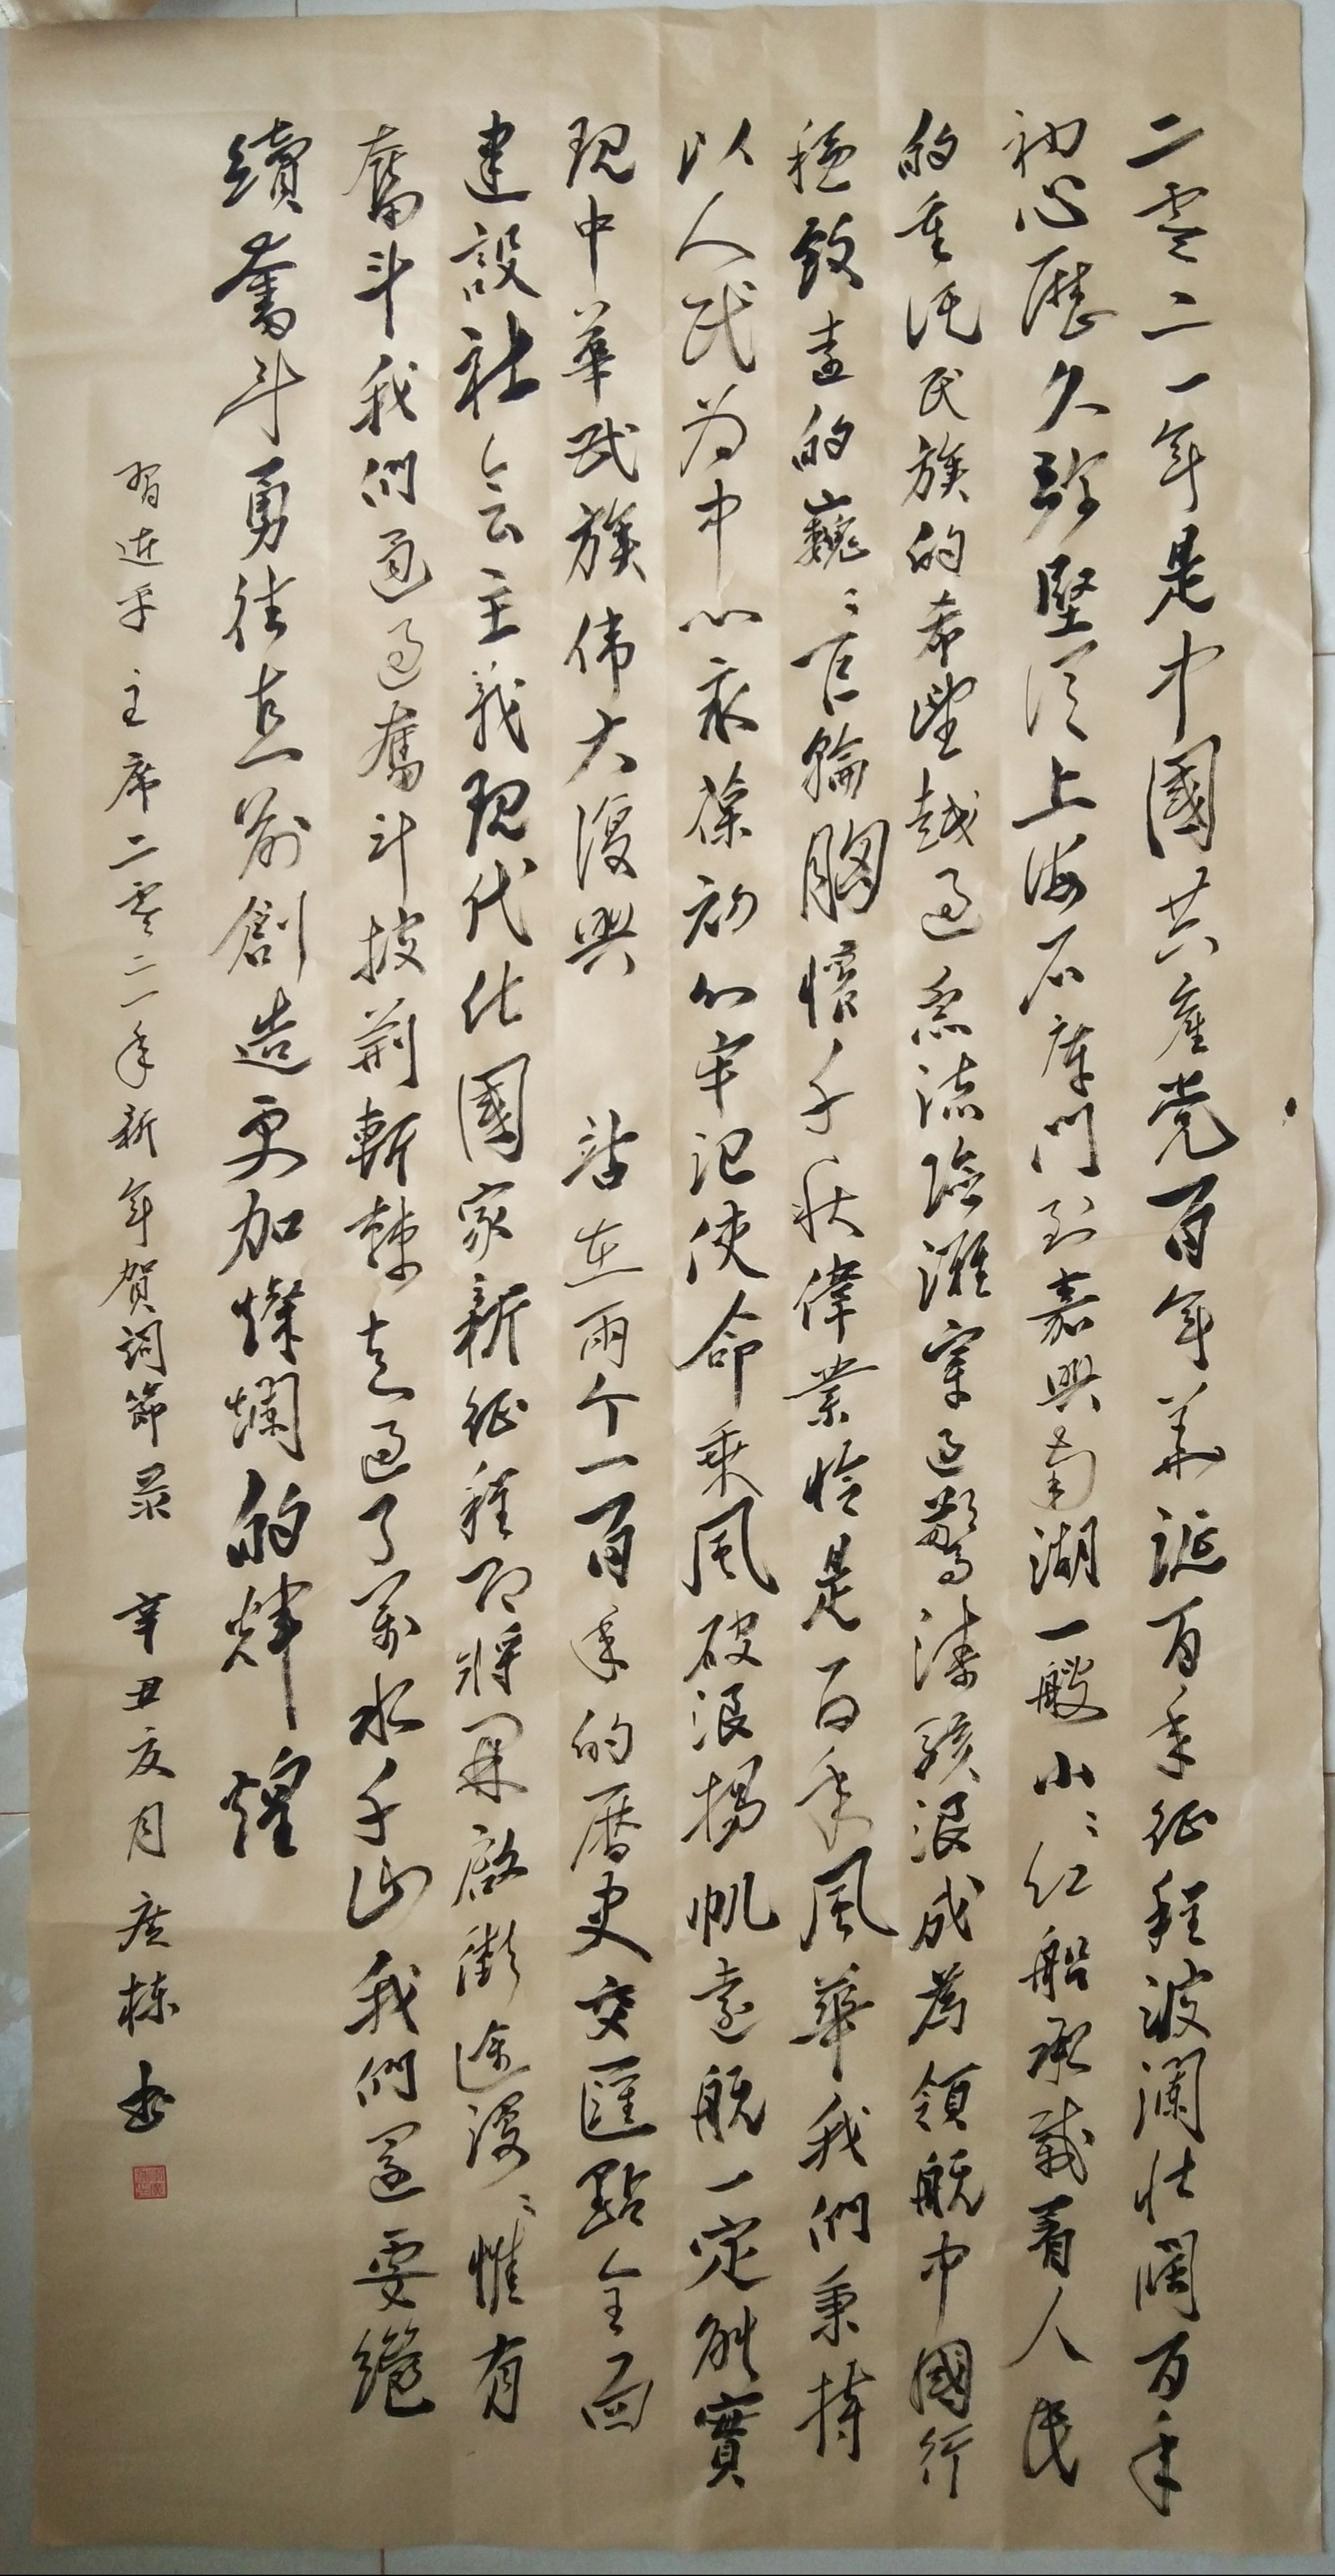 二零二一年是中國共產党百年華誕百年征程波瀾壮闊百年
初心歷久弥堅從上海石庫門到嘉興南湖一艘小〻红船承載着人民
的重托民族的希望越過急流险灘穿過驚濤駭浪成為領航中國行
穩致遠的巍〻巨輪胸懷千秋偉業恰是百年風華我們秉持
以人民为中心永葆初心牢记使命乘風破浪揚帆遠航一定能實
現中華民族伟大復興 站在兩个一百年的曆史交匯點全面
建設社会主義現代化國家新征程即將開啟徵途漫〻惟有
奮斗我們通過奮斗披荆斬棘走過了萬水千山我們還要繼
續奮斗勇往直前創造更加燦爛的輝煌
習近平主席二零二一年新年賀詞節录 辛丑友月 廣栋书